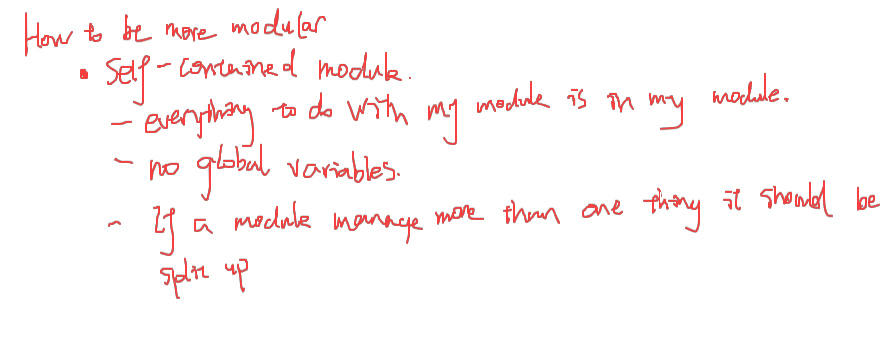 How to be more modular
• Self-contained module.
- everything to do with my module is in my module.
- no global variables.
- If a module manage more than one thing it should be
split up